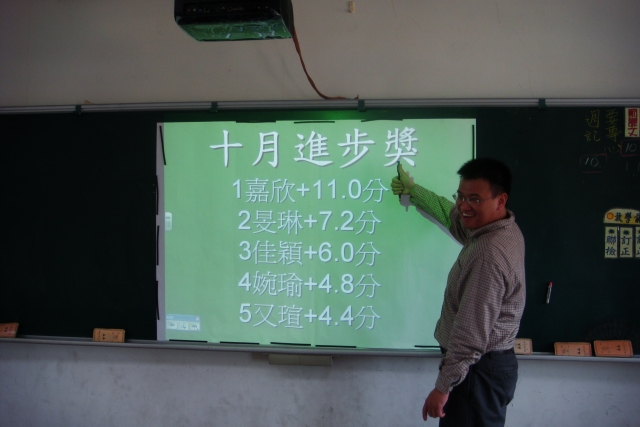 十月進步獎
1嘉欣+11.0分
2旻琳+7.2分
3佳穎+6.0分
4婉瑜+4.8分
5又瑄+4.4分
週記
10
10
聯檢
訂正